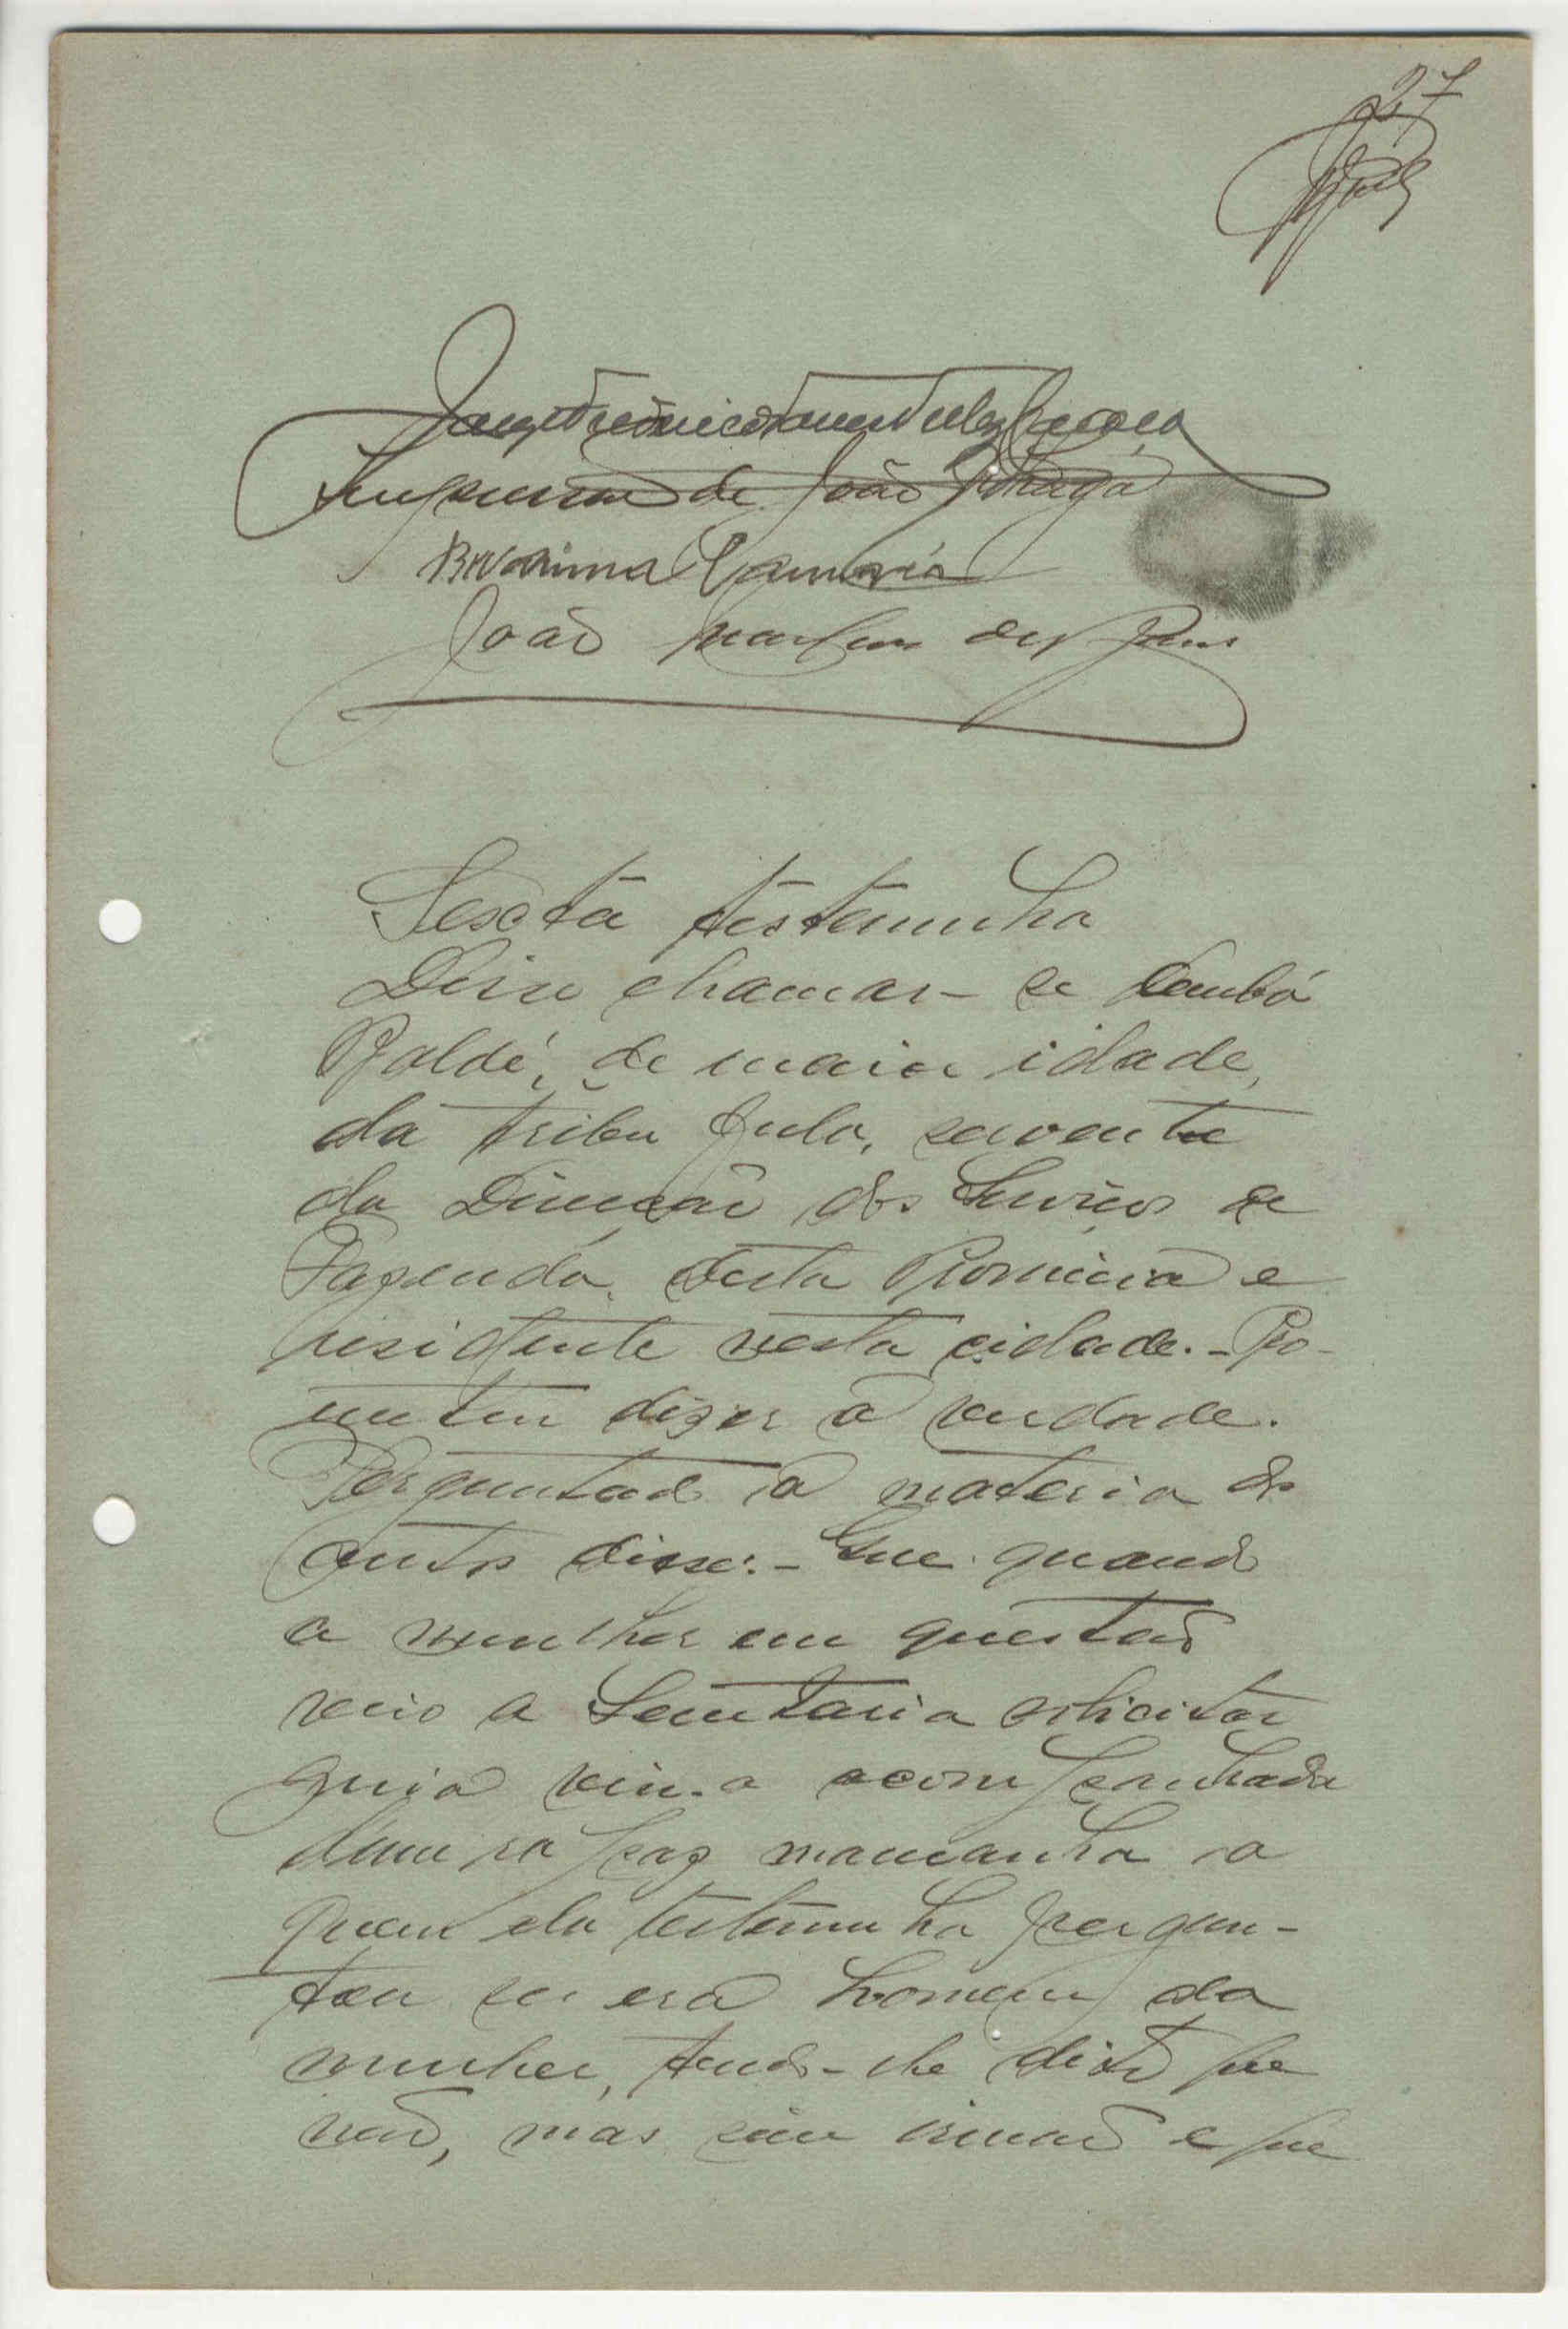 27
de João
João Martins
Sesta testemunha
Disse chamar-se Sambá
Baldé, de maior idade,
da tribu fula, servente
da Direcção dos Serviços de
Fazenda, desta Provincia e
residente nesta cidade. - Pro-
meteu dizer a verdade.
Perguntado á materia dos
autos disse: - Que quando
a mulher em questão
veio a Secretaria solicitar
guia vinha acompanhada
dum rapaz mamanha a
quem ela testemunha pergun-
tou se era homem da
mulher, tendo-lhe dito que
não, mas sim irmão e que